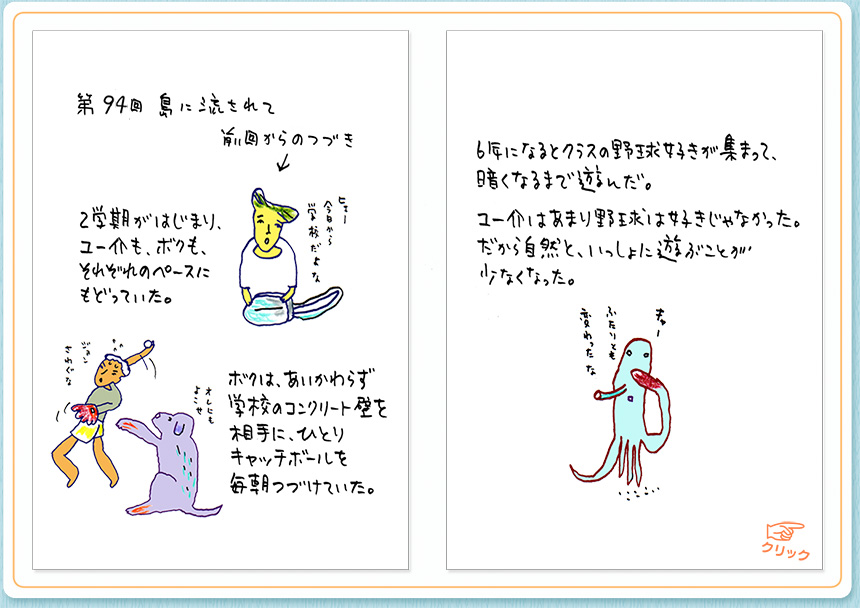 第94回 島に流されて
前回からのつづき
2学期がはじまり、
ユー介も、ボクも、
それぞれのペースに
もどっていた。
ヒェー
今日から
学校だよな
ジョン
さわぐな
オレにも
よこせ
ボクは、あいかわらず
学校のコンクリート壁を
相手に、ひとり
キャッチボールを
毎朝つづけていた。
6年になるとクラスの野球好きが集まって、
暗くなるまで遊んだ。
ユー介はあまり野球は好きじゃなかった。
だから自然と、いっしょに遊ぶことが
少なくなった。
キャー
ふたりとも
変わったな
クリック